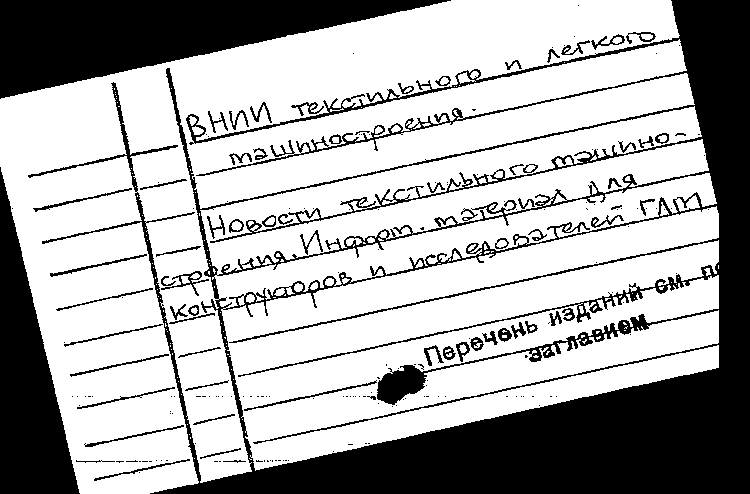 ВНИИ текстильного и легкого
машиностроения.
Новости текстильного машино-
строения. Информ. материал для
конструкторов и исследователей ГЛМ
Перечень изданий см. по
заглавием